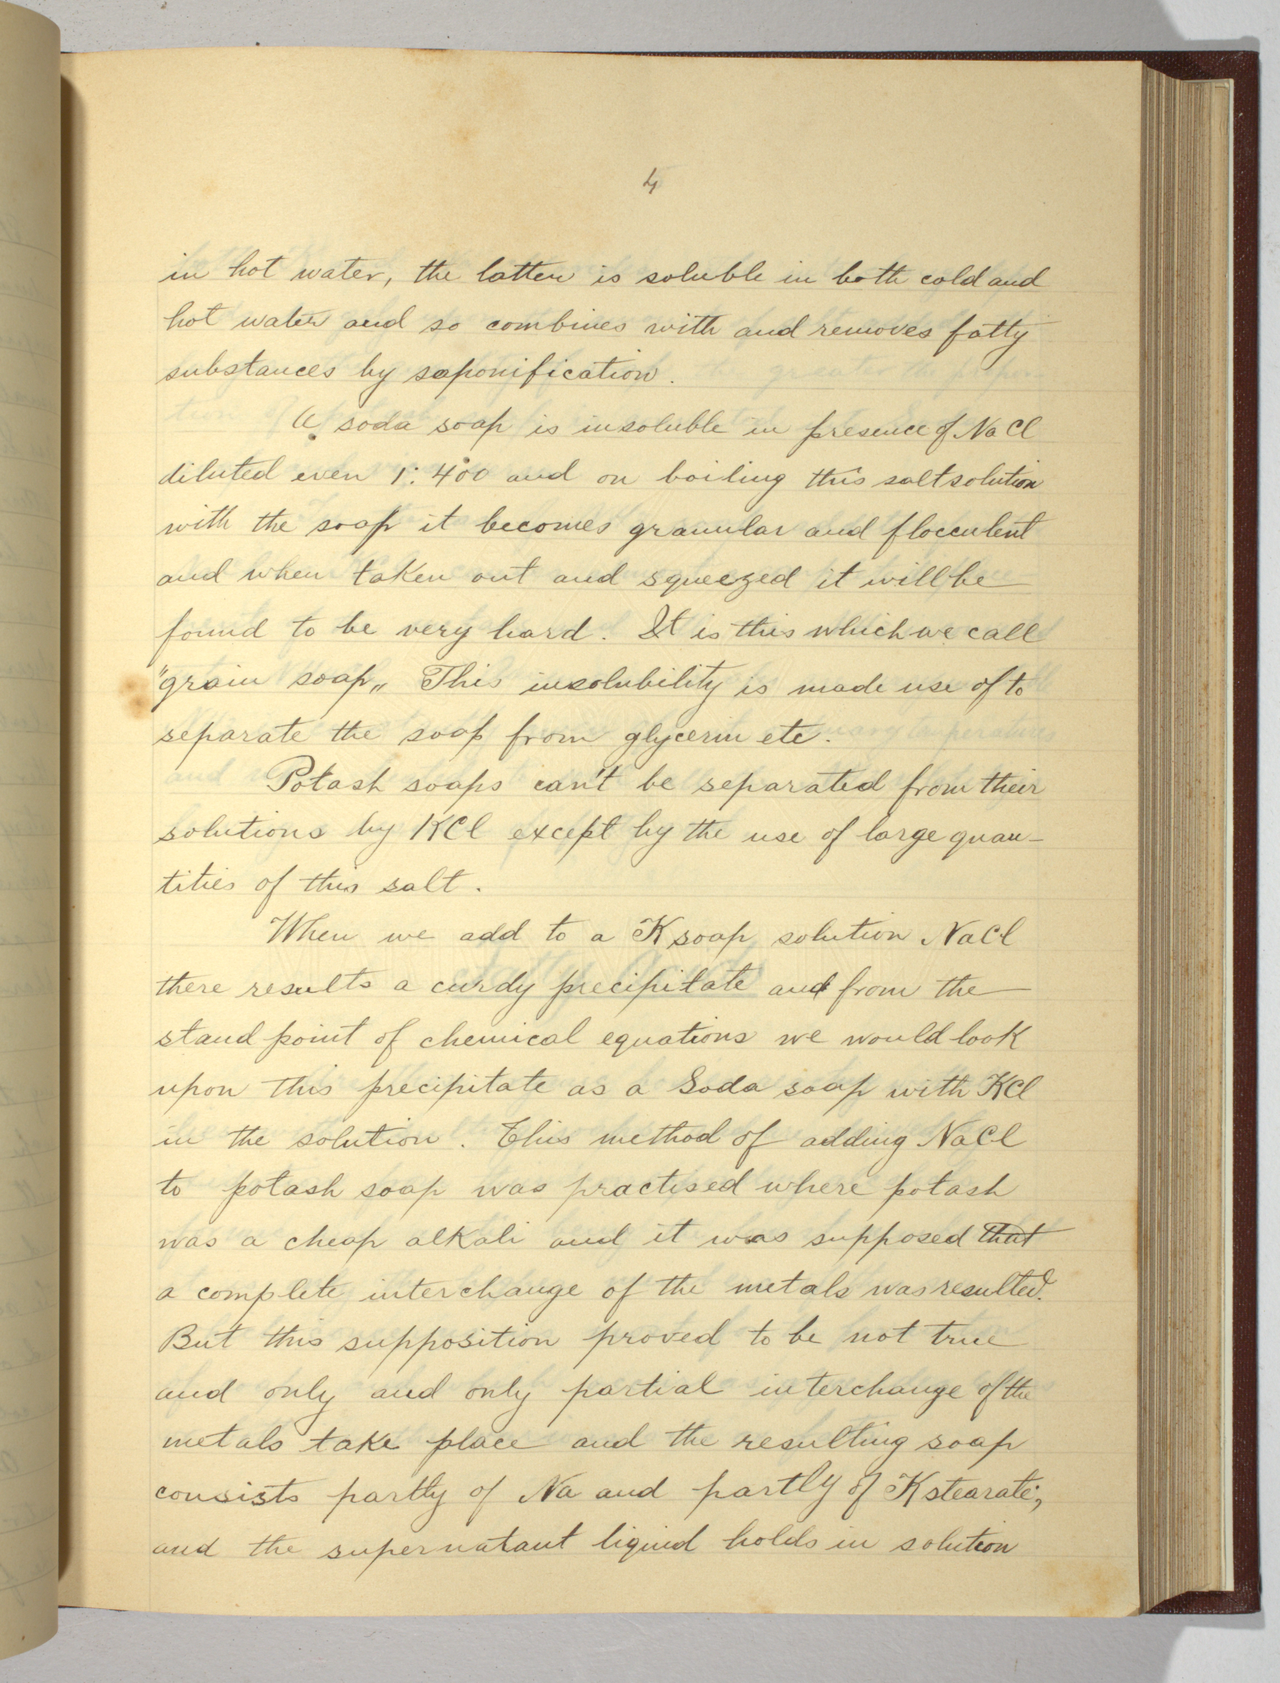 4
in hot water, the latter is soluble in both cold and
hot water and so combines with and removes fatty
substances by saponification.
A soda soap is insoluble in presence of NaCl
diluted even 1:400 and on boiling this salt solution
with the soap it becomes granular and flocculent
and when taken out and squeezed it will be
found to be very hard. It is this which we call
"grain soap„ This insolubility is made use of to
separate the soap from glycerin etc.
Potash soaps can't be separated from their
solutions by KCl except by the use of large quan-
tities of this salt.
When we add to a K soap solution NaCl
there results a curdy precipitate and from the
stand point of chemical equations we would look
upon this precipitate as a Soda soap with KCl
in the solution. This method of adding NaCl
to potash soap was practised where potash
was a cheap alkali and it was supposed that
a complete interchange of the metals was resulted.
But this supposition proved to be not true
and only and only partial interchange of the
metals take place and the resulting soap
consists partly of Na and partly of K stearate,
and the supernatant liquid holds in solution